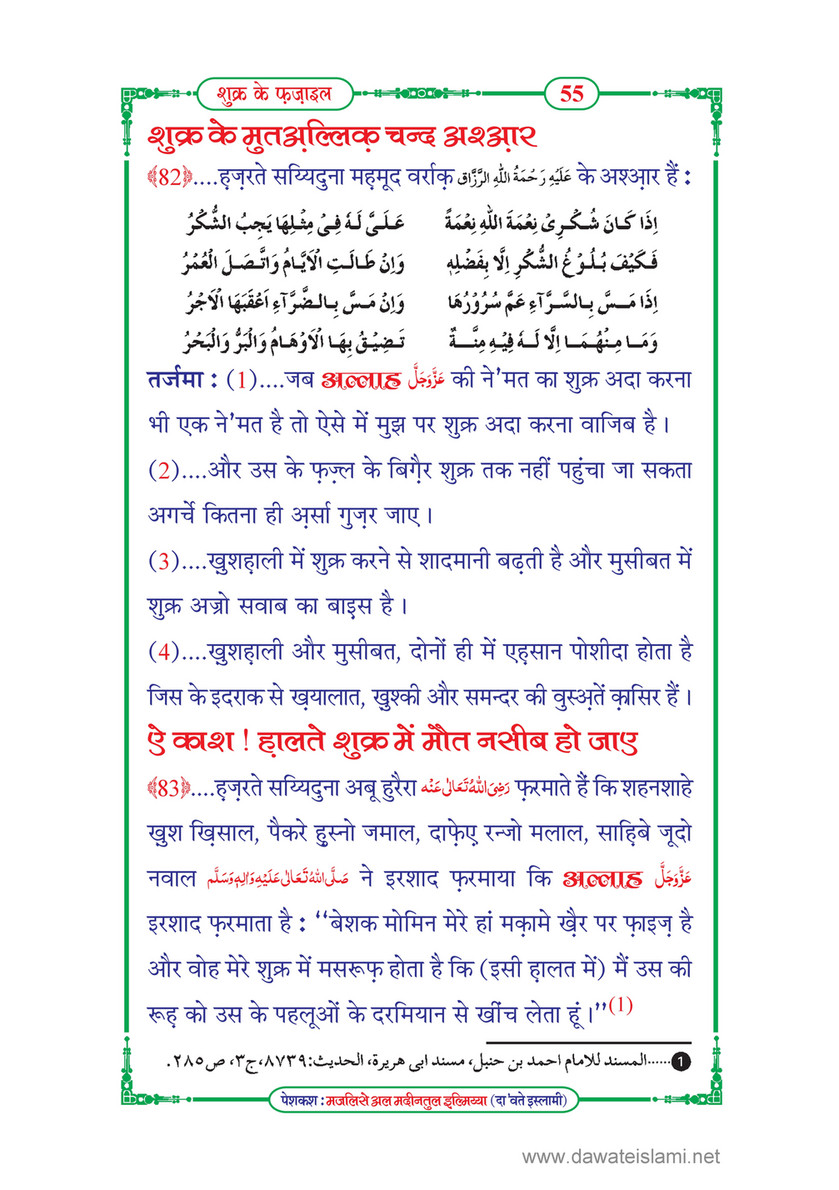 शुक्र के फ़ज़ाइल
55
शुक्र के मुतअ़ल्लिक़ चन्द अश्आ़र
﴾82﴿....हज़रते सय्यिदुना महमूद वर्राक़ عَلَیْہِ رَحْمَۃُ اللہِ الرَّزَّاق के अश्आ़र हैं :
اِذَا كَانَ شُكْرِیْ نِعْمَةَ اللّٰهِ نِعْمَةً عَلَىَّ لَهٗ فِیْ مِثْلِهَا يَجِبُ الشُّكْرُ
فَكَيْفَ بُلُوْغُ الشُّكْرِ اِلَّا بِفَضْلِهٖ وَاِنْ طَالَتِ الْاَيَّامُ وَاتَّصَلَ الْعُمْرُ
اِذَا مَسَّ بِالسَّرَّآءِ عَمَّ سُرُوْرُهَا وَاِنْ مَسَّ بِالضَّرَّآءِ اَعْقَبَهَا الْاَجْرُ
وَمَا مِنْهُمَا اِلَّا لَهٗ فِيْهِ مِنَّةٌ تَضِيْقُ بِهَا الْاَوْهَامُ وَالْبَرُّ وَالْبَحْرُ
तर्जमा : (1)....जब अल्लाह عَزَّوَجَلَّ की ने'मत का शुक्र अदा करना
भी एक ने'मत है तो ऐसे में मुझ पर शुक्र अदा करना वाजिब है ।
(2)....और उस के फ़ज़्ल के बिग़ैर शुक्र तक नहीं पहुंचा जा सकता
अगर्चे कितना ही अ़र्सा गुज़र जाए ।
(3)....ख़ुशहाली में शुक्र करने से शादमानी बढ़ती है और मुसीबत में
शुक्र अज्रो सवाब का बाइ़स है ।
(4)....ख़ुशहाली और मुसीबत, दोनों ही में एह़सान पोशीदा होता है
जिस के इदराक से ख़यालात, ख़ुश्की और समन्दर की वुस्अ़तें क़ासिर हैं ।
ऐ काश ! ह़ालते शुक्र में मौत नसीब हो जाए
﴾83﴿....ह़ज़रते सय्यिदुना अबू हुरैरा رَضِیَ اللہُ تَعَالٰی عَنْہ फ़रमाते हैं कि शहनशाहे
ख़ुश ख़िसाल, पैकरे हु़स्नो जमाल, दाफ़ेए़ रन्जो मलाल, साहि़बे जूदो
नवाल صَلَّی اللہُ تَعَالٰی عَلَیْہِ وَاٰلِہٖ وَسَلَّم ने इरशाद फ़रमाया कि अल्लाह عَزَّوَجَلَّ
इरशाद फ़रमाता है : “बेशक मोमिन मेरे हां मक़ामे ख़ैर पर फ़ाइज़ है
और वोह मेरे शुक्र में मसरूफ़ होता है कि (इसी ह़ालत में) मैं उस की
रूह़ को उस के पहलूओं के दरमियान से खींच लेता हूं ।”(1)
1......المسند للامام احمد بن حنبل، مسند ابی هریرة، الحدیث:۸۷۳۹،ج۳، ص۲۸۵.
पेशकश : मजलिसे अल मदीनतुल इल्मिय्या (दा'वते इस्लामी)
www.dawateislami.net